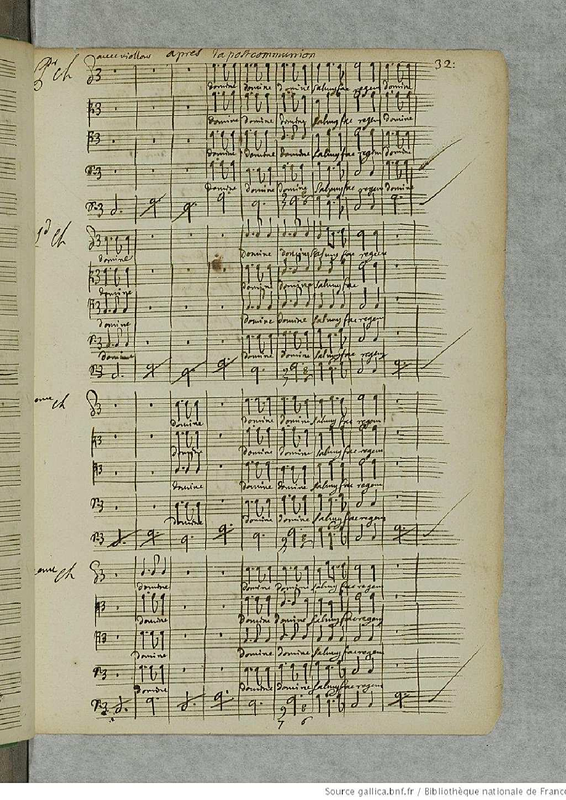 avec viollons après la postcommunion
32:
1er ch
domine domine domine salvum fac regem domine
domine domine domine salvum fac regem domine
domine domine domine salvum fac regem domine
domine domine domine salvum fac regem domine
2d ch
domine domine domine salvum fac regem
domine domine domine salvum fac
domine domine domine salvum fac regem
domine domine domine salvum fac regem
eme ch
domine domine domine salvum fac regem
domine domine domine salvum fac regem
domine domine domine salvum fac regem
domine domine domine salvum fac regem
eme ch
domine domine domine salvum fac regem
domine domine domine salvum fac regem
domine domine domine salvum fac regem
domine domine domine salvum fac regem
7 6
Source gallica.bnf.fr / Bibliothèque nationale de France